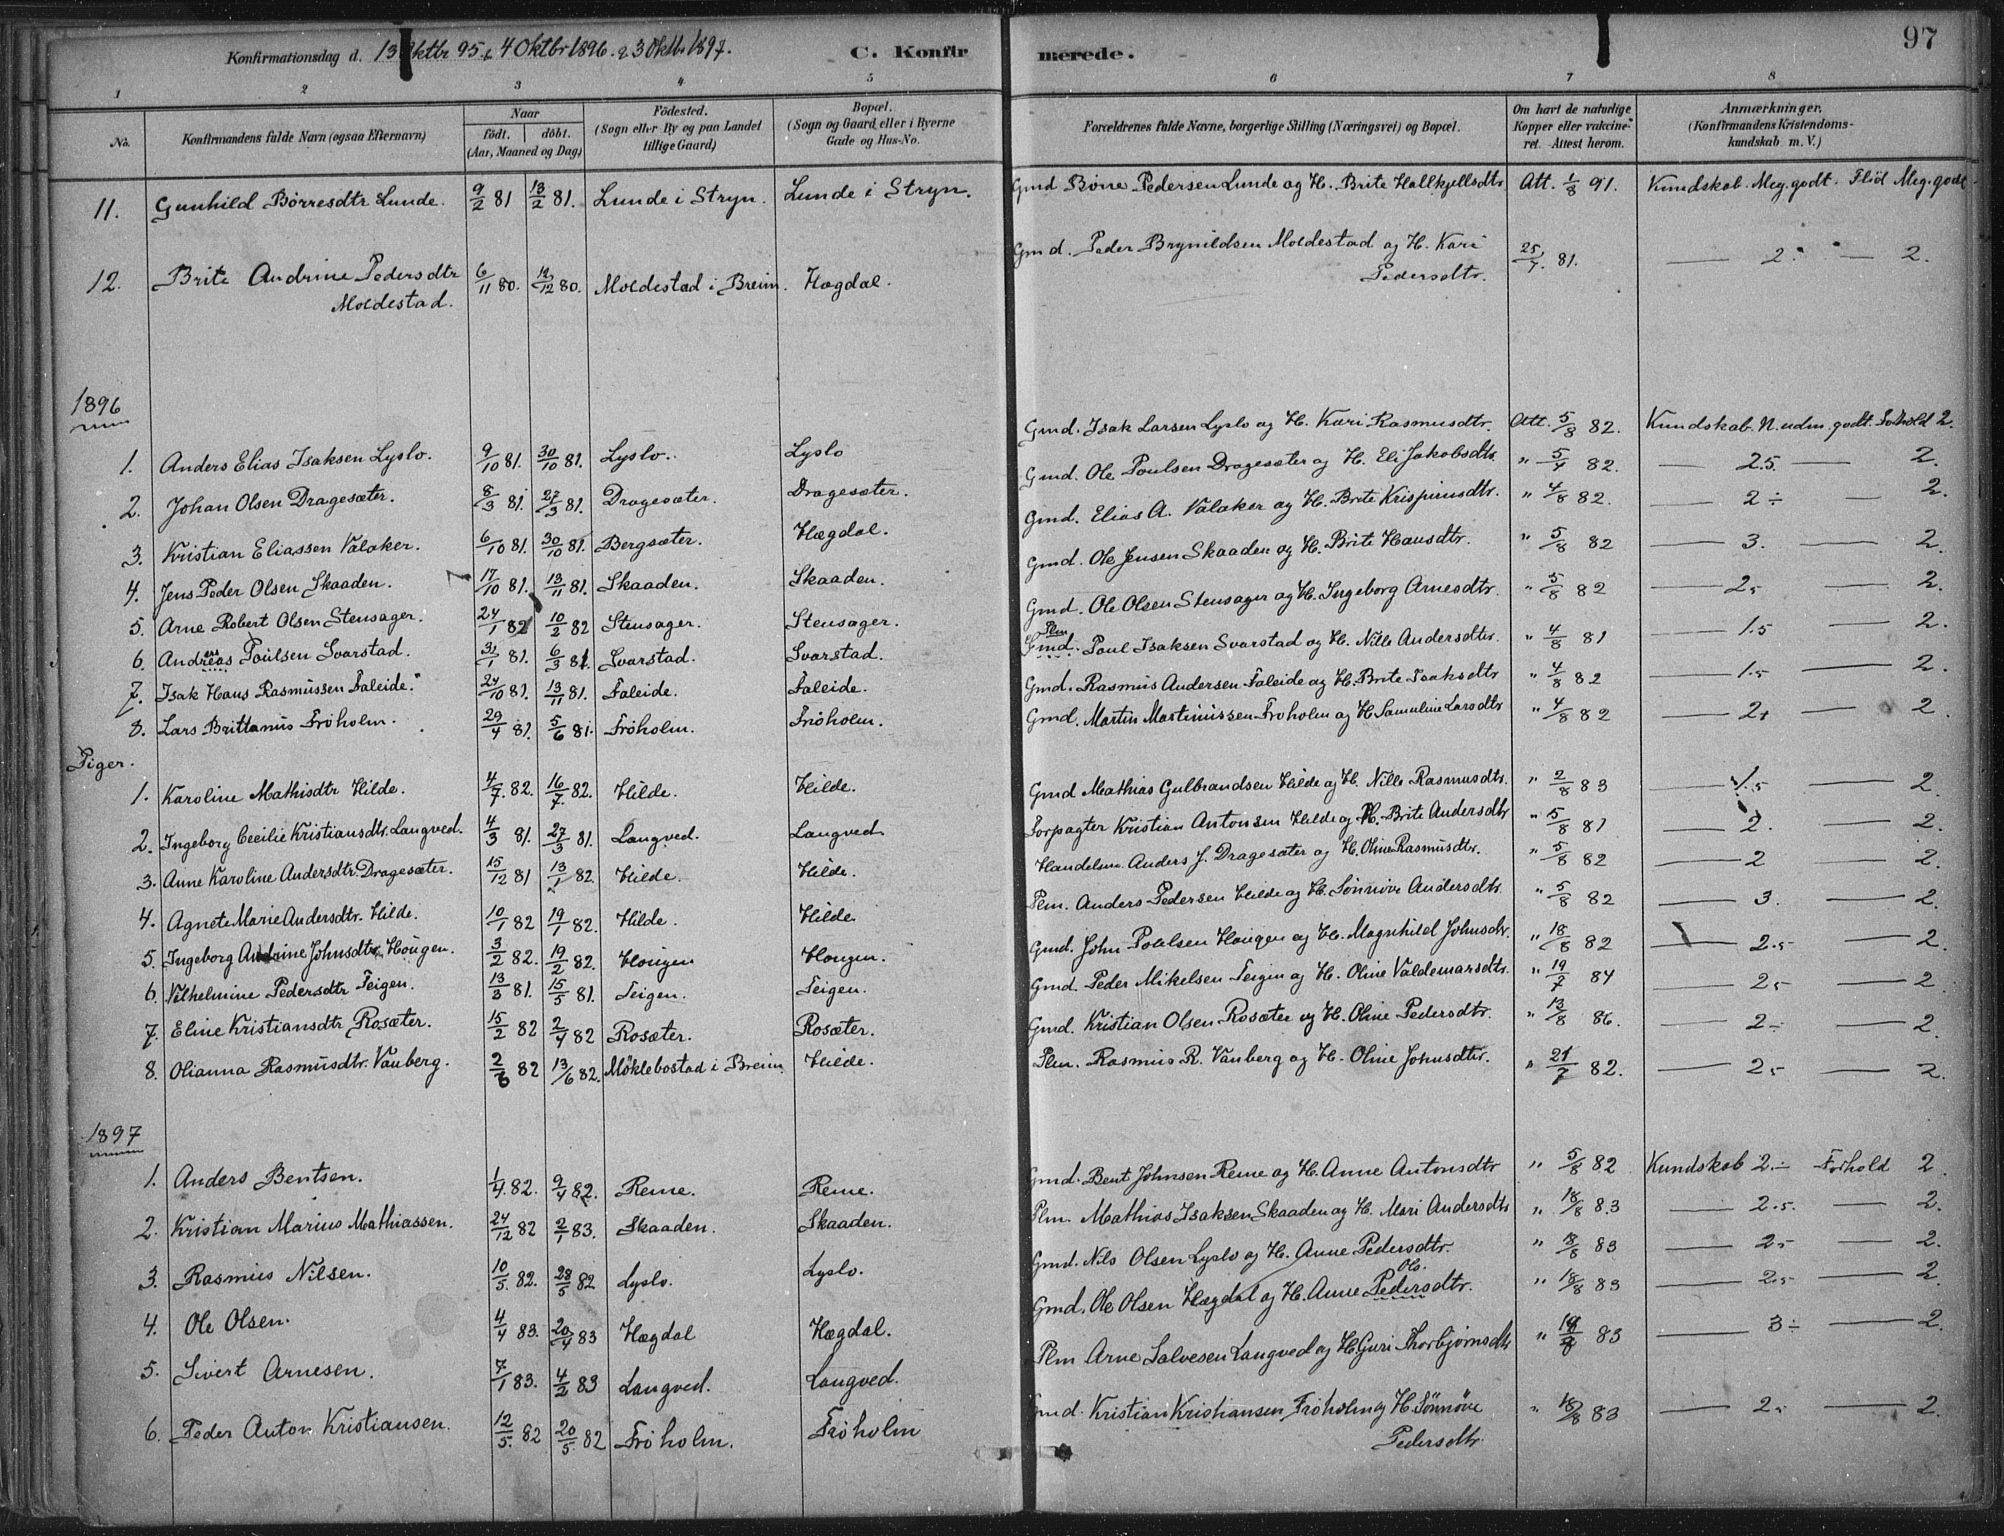 Konfirmationsdag d. 13 Oktbr 95. & 4 Oktbr 1896. & 3 Oktb. 1897. C. Konfirmerede. 97
1 2 3 4 5 6 7 8
No. Konfirmandens fulde Navn (ogsaa Efternavn) Naar födt. döbt. (Aar, Maaned og Dag) Födested. (Sogn eller By og paa Landet tillige Gaard) Bopæl. (Sogn og Gaard, eller i Byerne Gade og Hus-No. Forældrenes fulde Navne, borgerlige Stilling (Næringsvei) og Bopæl. Om havt de naturlige Kopper eller vakcineret. Attest herom. Anmærkninger. (Konfirmandens Kristendomskundskab m. V.)
11. Gunhild Börresdtr Lunde. 9/2 81 13/2 81. Lunde i Stryn. Lunde i Stryn. Gmd Börre Pedersen Lunde og H. Brite Hallkjellsdtr Att. 1/8 91. Kundskab. Meg. godt. Flid Meg. godt
12. Brite Andrine Pedersdtr Moldestad. 6/11 80. 12/12 80. Moldestad i Breim. Hægdal. Gmd. Peder Brynildsen Moldestad og H. Kari Pedersdtr. 25/7. 81. — 2. — 2.
1896
1. Anders Elias Isaksen Lyslo. 9/10 81. 30/10 81. Lyslo. Lyslo Gmd. Isak Larsen Lyslo og H. Kari Rasmusdtr. Att. 5/8 82. Kundskab. N. uden. godt. Forhold 2.
2. Johan Olsen Dragesæter. 8/3 81. 27/3 81. Dragesæter. Dragesæter. Gmd. Ole Poulsen Dragesæter og H. Eli Jakobsdtr " 5/4 82. — 2.5. — 2.
3. Kristian Eliassen Valaker. 6/10 81. 30/10 81. Bergsæter. Hægdal. Gmd. Elias A. Valaker og H. Brite Krispinusdtr. " 4/8 82. — 2 ÷ — 2.
4. Jens Peder Olsen Skaaden. 17/10 81. 13/11 81. Skaaden. Skaaden. Gmd. Ole Jensen Skaaden og H. Brite Hansdtr. " 5/8 82 — 3. — 2.
5. Arne Robert Olsen Stensager. 24/1 82 10/2 82 Stensager. Stensager. Gmd. Ole Olsen Stensager og H. Ingeborg Arnesdtr " 5/8 82 — 2,5 — 2.
6. Andreas Poulsen Svarstad. 31/1 81. 6/3 81. Svarstad. Svarstad. Plm Gmd. Poul Isaksen Svarstad og H. Nille Andersdtr. " 4/8 81 — 1.5 — 2.
7. Isak Hans Rasmussen Faleide. 24/10 81. 13/11 81. Faleide. Faleide. Gmd. Rasmus Andersen Faleide og H. Brite Isaksdtr " 4/8 82 — 1.5 — 2.
8. Lars Brittanus Fröholm. 29/4 81. 5/6 81. Fröholm. Fröholm. Gmd. Martin Martinussen Fröholm og H. Samuline Larsdtr " 4/8 82 — 2+ — 2.
Piger.
1. Karoline Mathisdtr Hilde. 4/7. 82. 16/7. 82. Hilde. Hilde. Gmd Mathias Gulbrandsen Hilde og H. Nille Rasmusdtr. " 2/8 83 — 1.5 — 2.
2. Ingeborg Cecilie Kristiansdtr. Langved. 4/3 81. 27/3 81. Langved. Langved Forpagter Kristian Antonsen Hilde og H. Brite Andersdtr " 5/8 81 — 2. — 2.
3. Anne Karoline Andersdtr. Dragesæter. 15/12 81 13/1 82. Hilde. Hilde. Handelsm. Anders J. Dragesæter og H. Oline Rasmusdtr. " 5/8 82 — 2 — 2.
4. Agnete Marie Andersdtr. Hilde. 10/1 82 19/1 82. Hilde. Hilde Plm. Anders Pedersen Hilde og H. Sönnöve Andersdtr " 5/8 82 — 3. — 2.
5. Ingeborg Andrine Johnsdtr. Hougen. 3/2 82. 19/2 82. Hougen Hougen. Gmd. John Poulsen Hougen og H. Magnhild Johnsdtr. " 18/8 82 — 2.5 — 2.
6. Vilhelmine Pedersdtr Teigen. 13/3 81. 15/5 81. Teigen. Teigen. Gmd. Peder Mikelsen Teigen og H. Oline Valdemarsdtr. " 19/7 84 — 2,5 — 2
7. Eline Kristiansdtr Rosæter. 15/2 82 2/4 82 Rosæter. Rosæter. Gmd. Kristian Olsen Rosæter og H. Oline Pedersdtr. " 13/8 86. — 2 ÷ — 2.
8. Olianna Rasmusdtr. Vanberg. 2/6 82 13/6 82. Möklebostad i Breim. Hilde. Plm. Rasmus R. Vanberg og H. Oline Johnsdtr. " 21/7 82. — 2,5 — 2.
1897
1. Anders Bentsen. 1/4. 82. 9/4 82. Reme. Reme. Gmd. Bent Johnsen Reme og H. Anne Antonsdtr " 5/8 82 Kundskab 2 ÷ Forhold 2.
2. Kristian Marius Mathiassen. 24/12 82 2/1 83. Skaaden. Skaaden. Plm. Mathias Isaksen Skaaden og H. Mari Andersdtr " 18/8 83 — 2.5. — 2.
3. Rasmus Nilsen. 10/5. 82. 28/5 82 Lyslo. Lyslo. Gmd. Nils Olsen Lyslo og H. Anne Pedersdtr. " 8/8 83 — 2,5 — 2.
4. Ole Olsen. 4/4 83. 20/4 83 Hægdal Hægdal. Gmd. Ole Olsen Hægdal og H. Anne Pedersdtr. Ols. " 18/8 83 — 2.5 — 2
5. Sivert Arnesen. 7/1 83. 4/2 83 Langved. Langved. Plm Arne Salvesen Langved og H Guri Thorbjörnsdtr " 18/8 83 — 3 ÷ — 2.
6. Peder Anton Kristiansen. 12/5. 82 20/5. 82 Fröholm. Fröholm Gmd. Kristian Kristiansen Fröholm og H Sönnöve Pedersdtr. " 18/8 83 — 2,5 — 2.